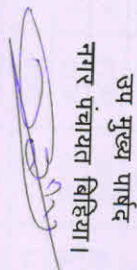 उप मुख्य पार्षद
नगर पंचायत बिहिया।